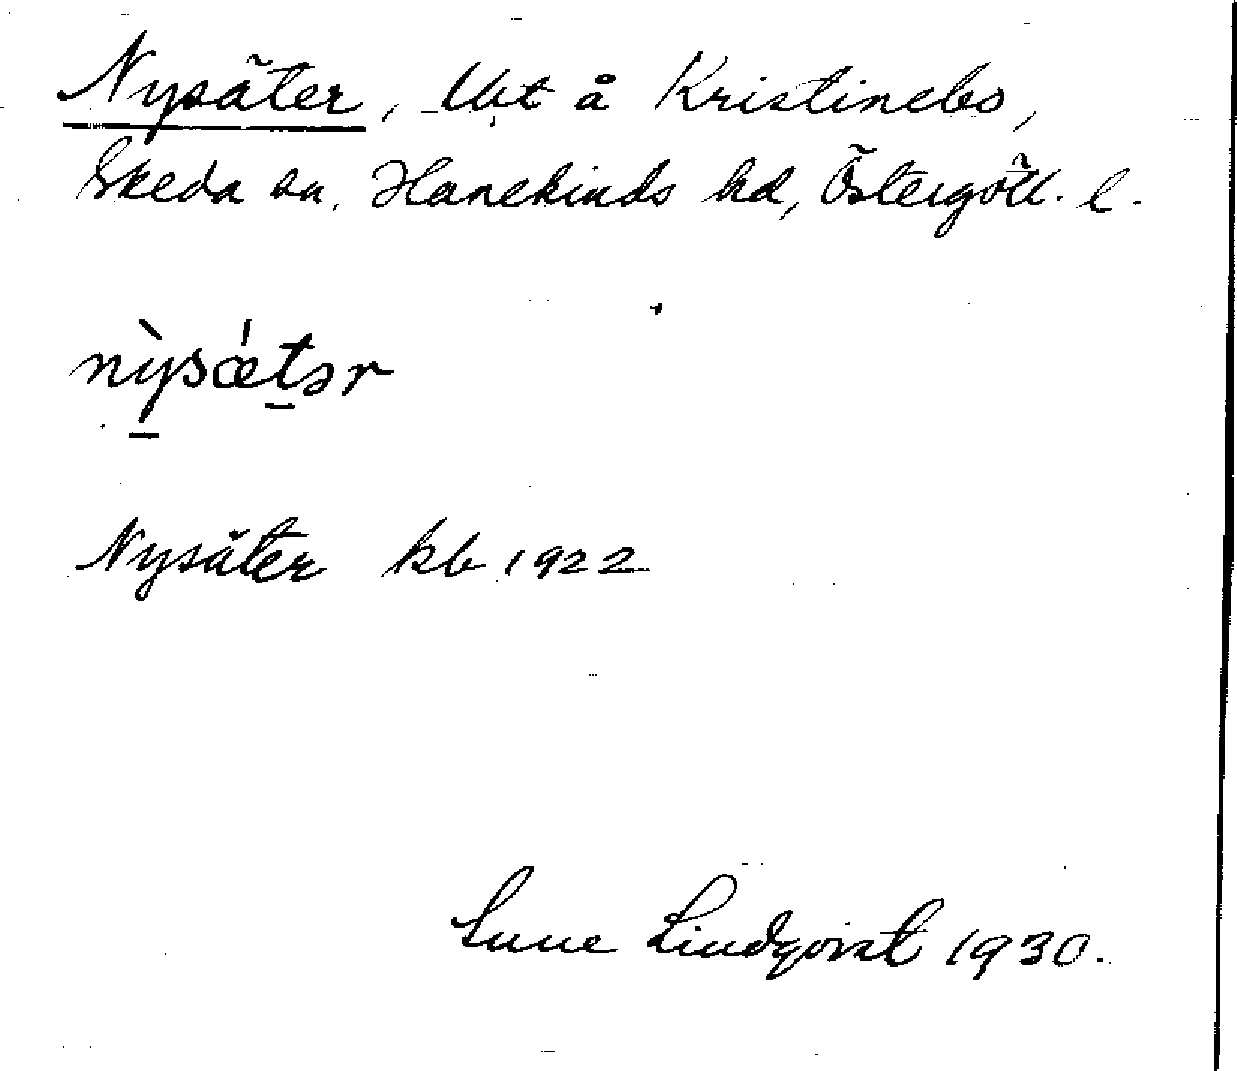 Nysäter, Lht å Kristinebo,
Skeda sn, Hanekinds hd, Östergötl. l.
nỳsǽtər
Nysäter kb 1922
Sune Lindqvist 1930.